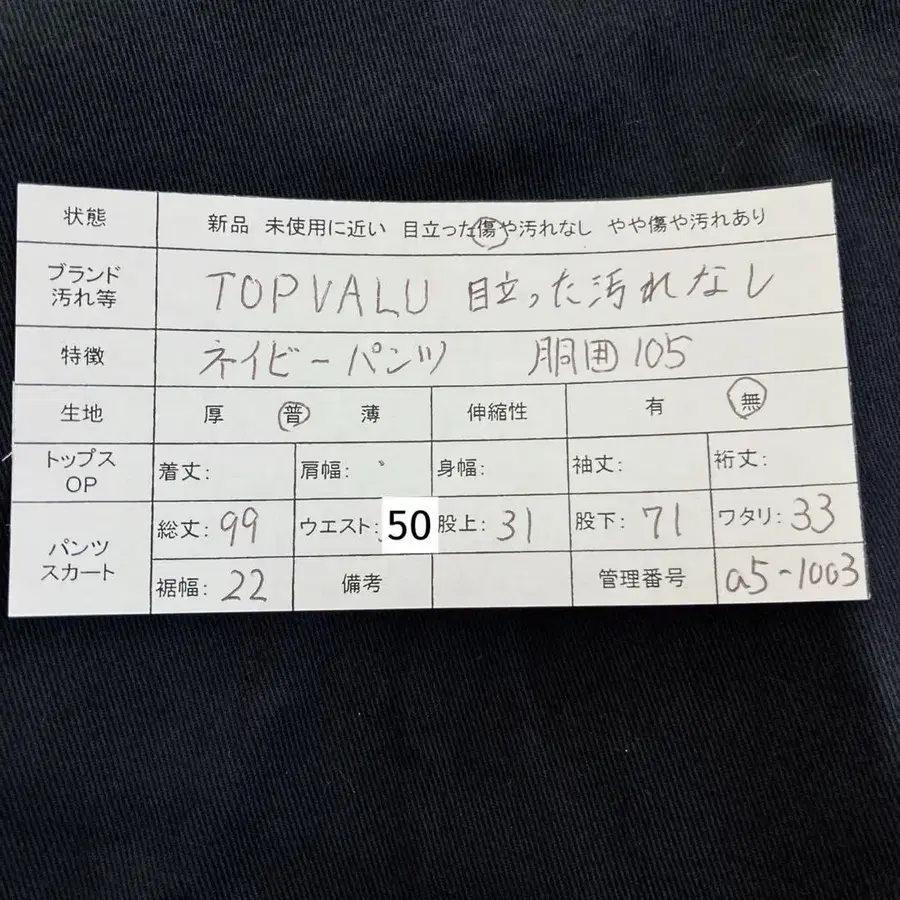 状態 新品 未使用に近い 目立った傷や汚れなし やや傷や汚れあり
ブランド 汚れ等 TOPVALU 目立った汚れなし
特徴 ネイビーパンツ 胴囲105
生地 厚 普 薄 伸縮性 有 無
トップス OP 着丈: 肩幅: 身幅: 袖丈: 裄丈:
パンツ スカート 総丈: 99 ウエスト: 50 股上: 31 股下: 71 ワタリ: 33
裾幅: 22 備考 管理番号 a5-1003